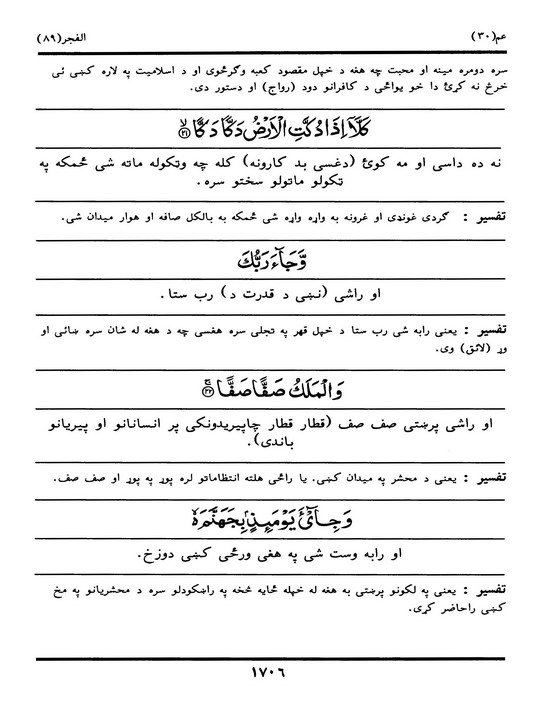 عم(٣٠)
الفجر(٨٩)
سره دومره مينه او محبت چه هغه د خپل مقصود کعبه وګرځوی او د اسلاميت په لاره کښی ئی
خرڅ نه کړئ دا خو يواځی د کافرانو دود (رواج) او دستور دی.
كَلَّآ اِذَا دُكَّتِ الْاَرْضُ دَكًّا دَكًّا ﴿٢١﴾
نه ده داسی او مه کوئ (دغسی بد کارونه) کله چه وټکوله ماته شی ځمکه په
ټکولو ماتولو سختو سره.
تفسير : ګردی غونډی او غرونه به واړه واړه شی ځمکه به بالکل صافه او هوار ميدان شی.
وَّجَآءَ رَبُّكَ
او راشی (نښی د قدرت د) رب ستا.
تفسير : يعنی رابه شی رب ستا د خپل قهر په تجلی سره هغسی چه د هغه له شان سره ښائی او
وړ (لائق) وی.
وَالْمَلَكُ صَفًّا صَفًّا ﴿٢٢﴾
او راشی پرښتی صف صف (قطار قطار چاپيريدونکی پر انسانانو او پيريانو
باندی).
تفسير : يعنی د محشر په ميدان کښی. يا راځی هلته انتظاماتو لره پوړ په پوړ او صف صف.
وَجِایْٓءَ يَوْمَىِٕذٍۭ بِجَهَنَّمَ
او رابه وست شی په هغی ورځی کښی دوزخ.
تفسير : يعنی په لکونو پرښتی به هغه له خپله ځايه څخه په راښکودلو سره د محشريانو په مخ
کښی راحاضر کړی.
١٧٠٦